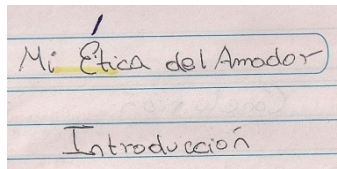 Mi Ética del Amador
Introducción